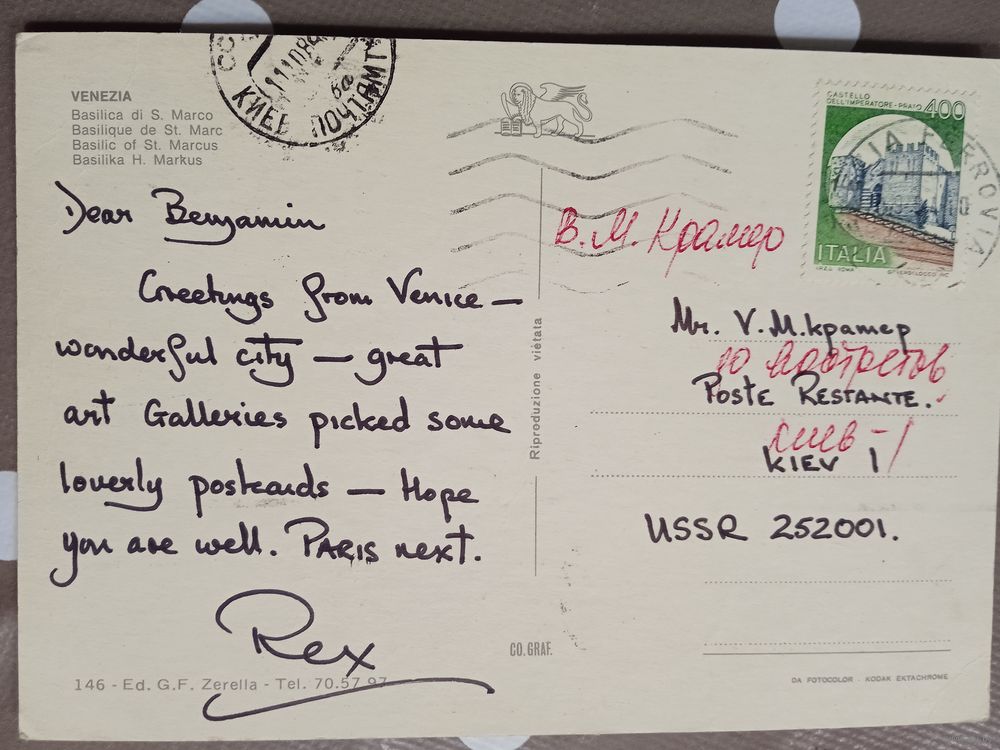 VENEZIA
Basilica di S. Marco
Basilique de St. Marc
Basilic of St. Marcus
Basilika H. Markus
КИЕВ ПОЧТАМТ
CASTELLO
DELL'IMPERATORE-PRATO 400
ITALIA
FERROVIA
Dear Benjamin
Greetings from Venice —
wonderful city — great
art Galleries picked some
loverly postcards — Hope
you are well. PARIS next.
Rex
146 - Ed. G.F. Zerella - Tel. 70.57.97
Riproduzione vietata
CO. GRAF.
В. М. Крамер
Mr. V. M. крамер
до востребов
POSTE RESTANTE.
Киев - 1
KIEV 1
USSR 252001.
DA FOTOCOLOR - KODAK EKTACHROME